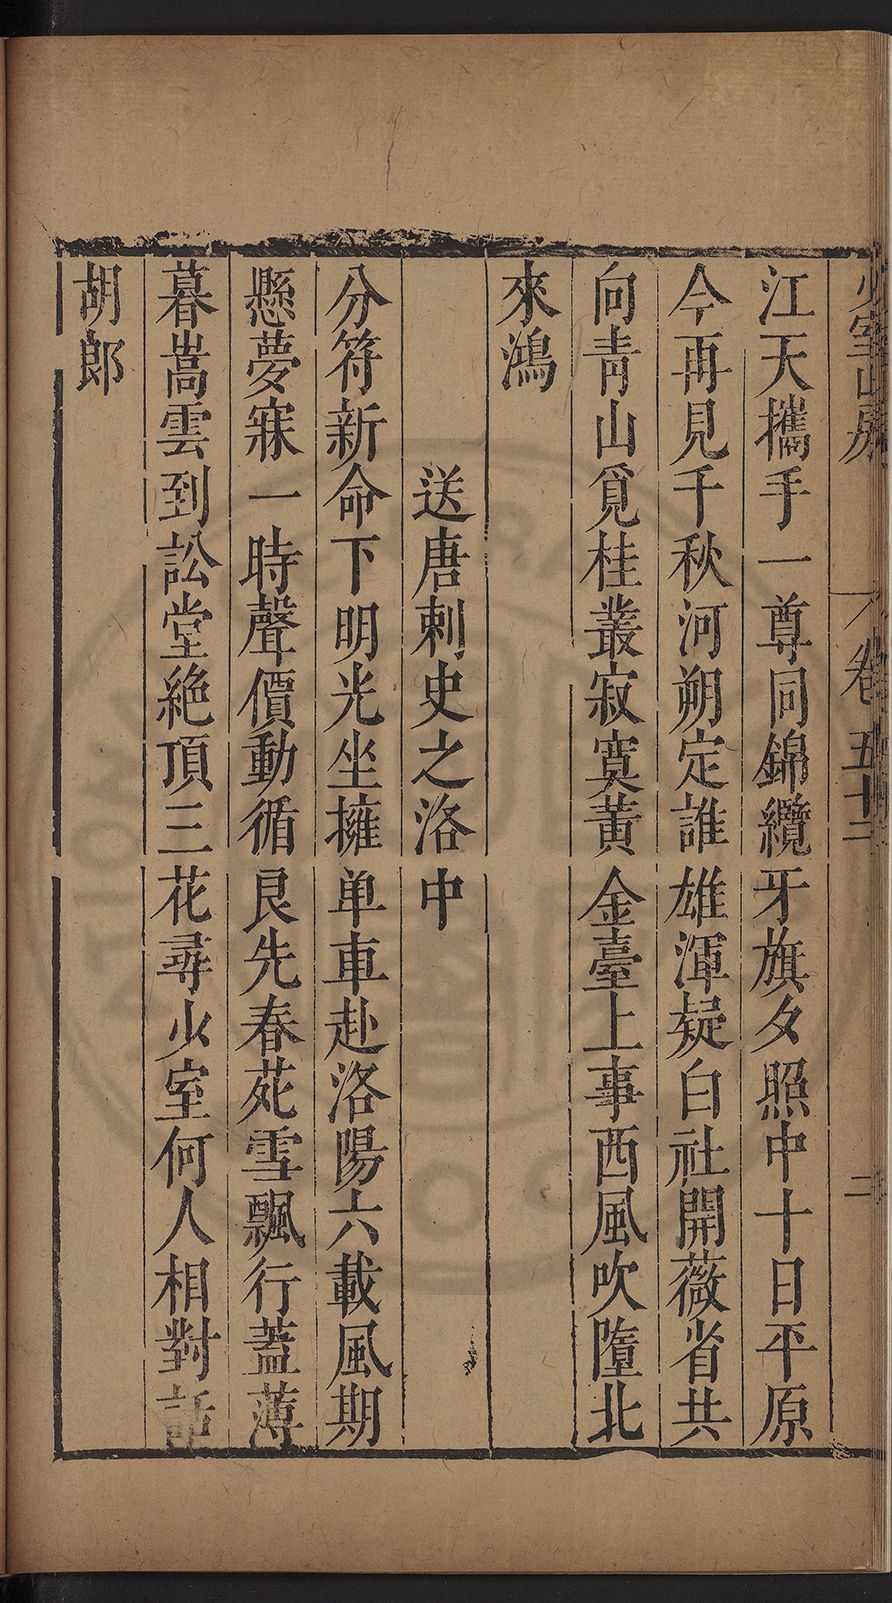 少室山房 卷五十二 二
江天攜手一尊同錦纜牙旗夕照中十日平原
今再見千秋河朔定誰雄渾疑白社開薇省共
向青山覓桂叢寂寞黃金臺上事西風吹墮北
來鴻
送唐刺史之洛中
分符新命下明光坐擁单車赴洛陽六載風期
懸夢寐一時聲價動循良先春苑雪飄行蓋薄
暮嵩雲到訟堂絶頂三花尋少室何人相對話
胡郎